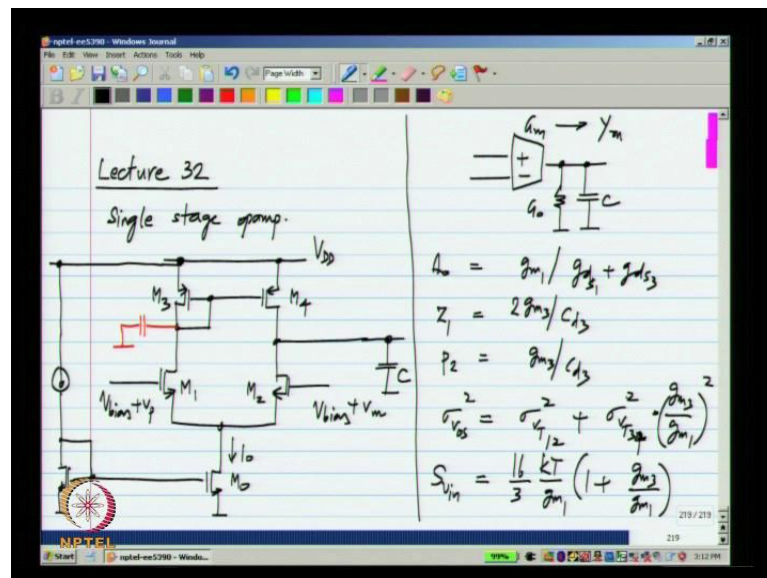 nptel-ee5390 - Windows Journal
File Edit View Insert Actions Tools Help
Page Width
B I
Lecture 32
Single stage opamp.
V_DD
M_3
M_4
M_1
M_2
C
V_bias+v_p
V_bias+v_m
I_0
M_0
G_m → Y_m
+
-
G_o
C
A_o = g_m1 / g_ds1 + g_ds3
Z_1 = 2g_m3 / C_d3
P_2 = g_m3 / C_d3
σ²_Vos = σ²_VT1/2 + σ²_VT34 · (g_m3/g_m1)²
S_vin = 16/3 kT/g_m1 (1 + g_m3/g_m1)
219/219
219
NPTEL
Start
nptel-ee5390 - Windo...
99%
3:12 PM